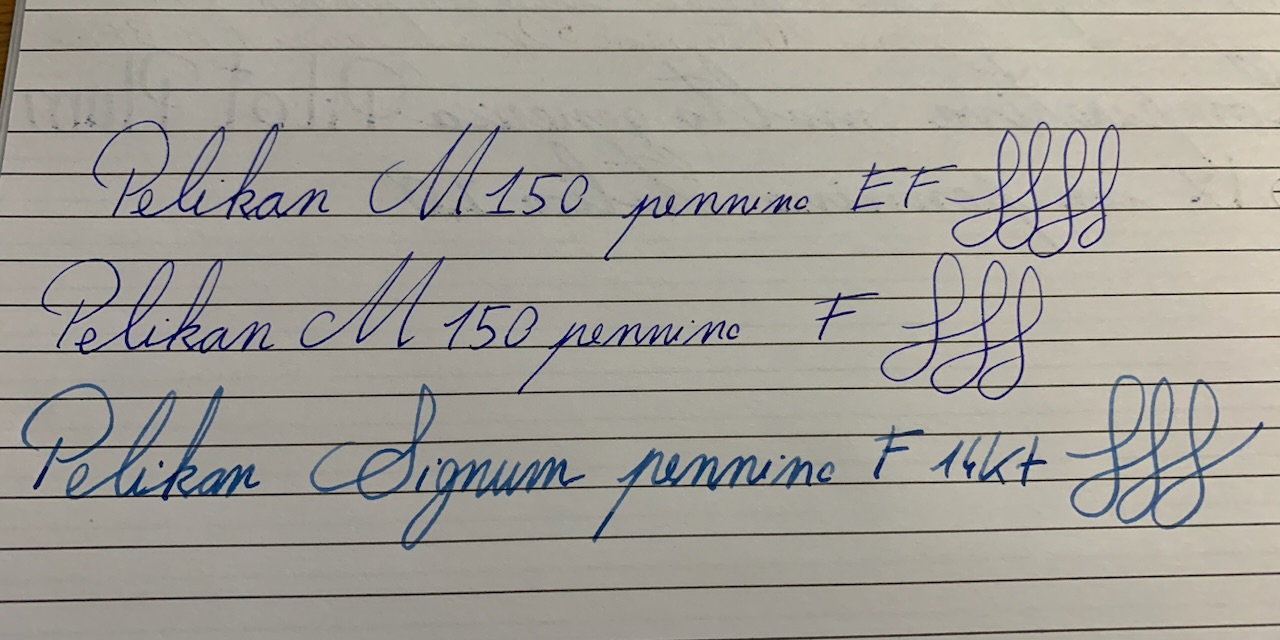 Pelikan M150 pennino EF
Pelikan M150 pennino F
Pelikan Signum pennino F 14Kt